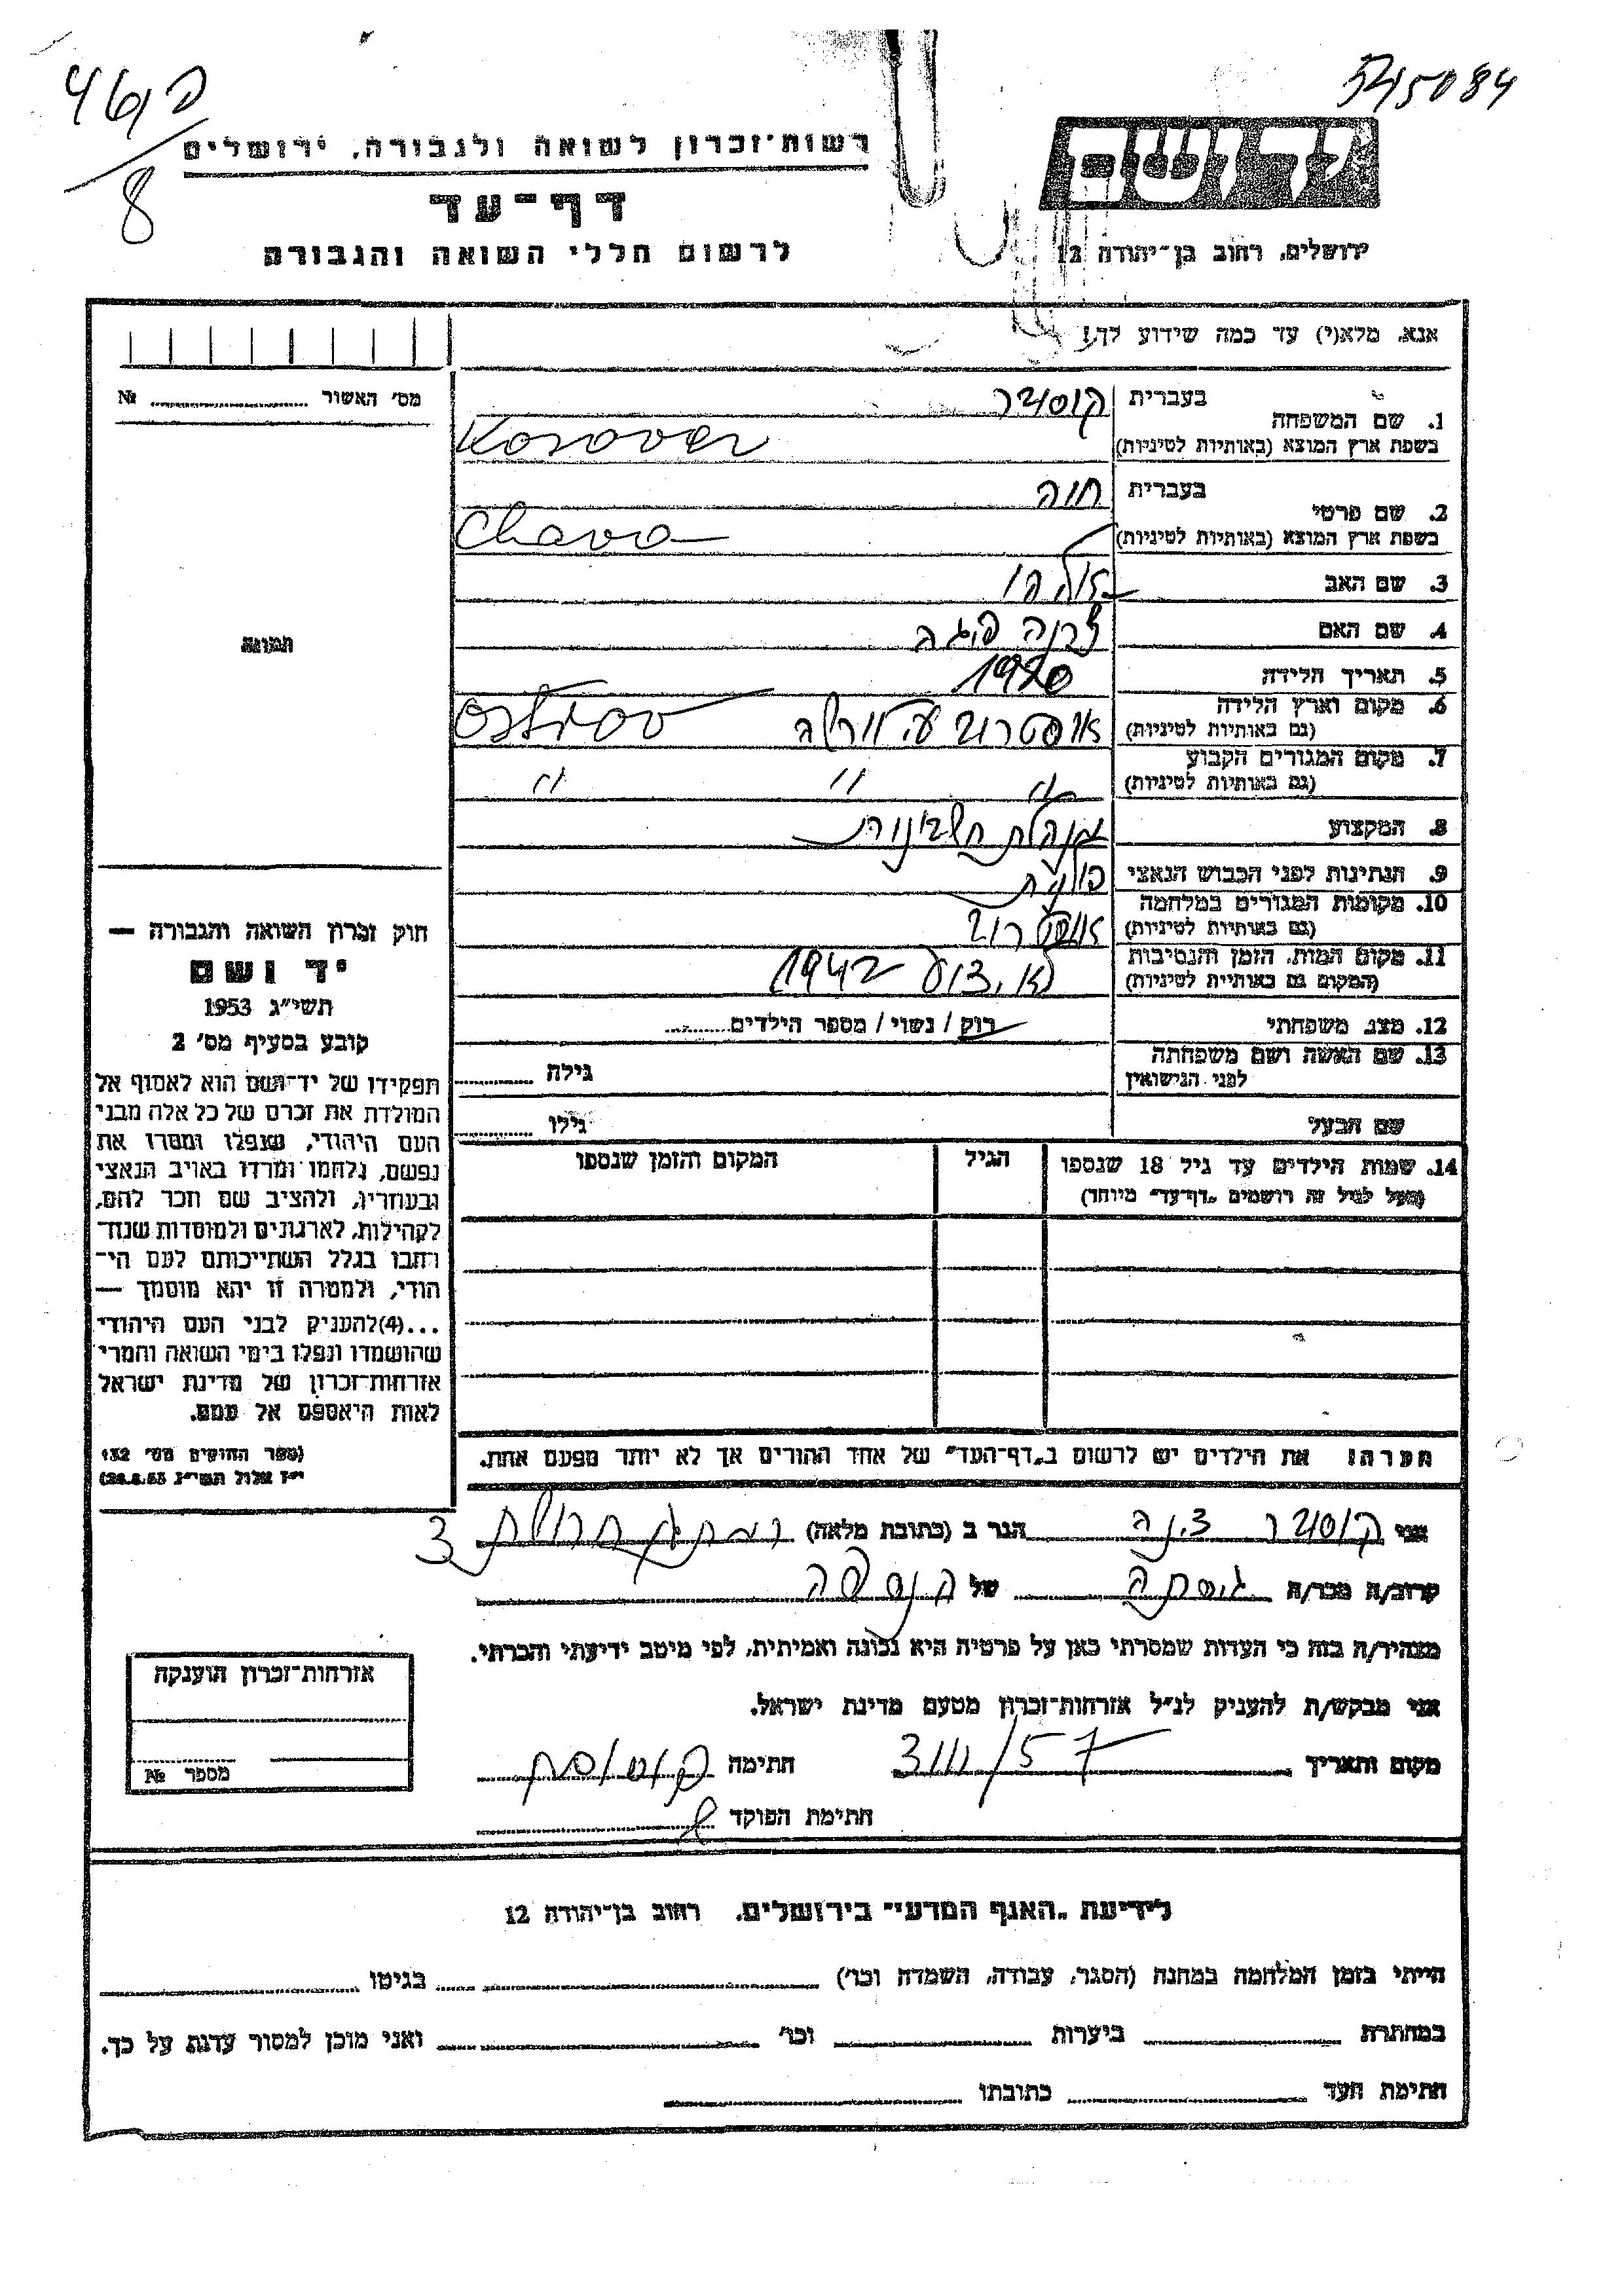 545084
46ק
8
רשות־זכרון לשואה ולגבורה, ירושלים
דף־עד
לרשום חללי השואה והגבורה
יד ושם
ירושלים, רחוב בן־יהודה 12
אנא, מלא(י) עד כמה שידוע לך!
מס' האשור № 
1. שם המשפחה
בעברית
קוסובר
בשפת ארץ המוצא (באותיות לטיניות)
Kosover
2. שם פרטי
בעברית
חוה
בשפת ארץ המוצא (באותיות לטיניות)
Chava
3. שם האב
4. שם האם
5. תאריך הלידה
1920
6. מקום וארץ הלידה
(גם באותיות לטיניות)
אוסטרוב
Ostrov
7. מקום המגורים הקבוע
(גם באותיות לטיניות)
" " "
8. המקצוע
מנהלת חשבונות
9. הנתינות לפני הכבוש הנאצי
פולנית
10. מקומות המגורים במלחמה
(גם באותיות לטיניות)
אוסטרוב
11. מקום המות, הזמן והנסיבות
(המקום גם באותיות לטיניות)
1942
12. מצב משפחתי
רוק / נשוי / מספר הילדים
13. שם האשה ושם משפחתה
לפני הנישואין
גילה
שם הבעל
גילו
14. שמות הילדים עד גיל 18 שנספו
(מעל לגיל זה רושמים "דף־עד" מיוחד)
הגיל
המקום והזמן שנספו
הערה: את הילדים יש לרשום ב"דף־העד" של אחד ההורים אך לא יותר מפעם אחת.
תמונה
חוק זכרון השואה והגבורה —
יד ושם
תשי"ג 1953
קובע בסעיף מס' 2
תפקידו של יד־ושם הוא לאסוף אל
המולדת את זכרם של כל אלה מבני
העם היהודי, שנפלו ומסרו את
נפשם, נלחמו ומרדו באויב הנאצי
ובעוזריו, ולהציב שם וזכר להם,
לקהילות, לארגונים ולמוסדות שנח־
רבו בגלל השתייכותם לעם הי־
הודי, ולמטרה זו יהא מוסמך —
...(4)להעניק לבני העם היהודי
שהושמדו ונפלו בימי השואה והמרי
אזרחות־זכרון של מדינת ישראל
לאות היאספם אל עמם.
(ספר החוקים מס' 132
י"ז אלול תשי"ג 28.8.53)
אני קוסובר הגר ב (כתובת מלאה) 3
קרוב/ה מכר/ה גיסתה של הנספה
מצהיר/ה בזה כי העדות שמסרתי כאן על פרטיה היא נכונה ואמיתית, לפי מיטב ידיעתי והכרתי.
אני מבקש/ת להעניק לנ"ל אזרחות־זכרון מטעם מדינת ישראל.
מקום ותאריך 3/11/57 חתימה
חתימת הפוקד
אזרחות־זכרון הוענקה
מספר №
לידיעת "האגף המדעי" בירושלים, רחוב בן־יהודה 12
הייתי בזמן המלחמה במחנה (הסגר, עבודה, השמדה וכו') בגיטו
במחתרת ביערות וכו' ואני מוכן למסור עדות על כך.
חתימת העד כתובתו